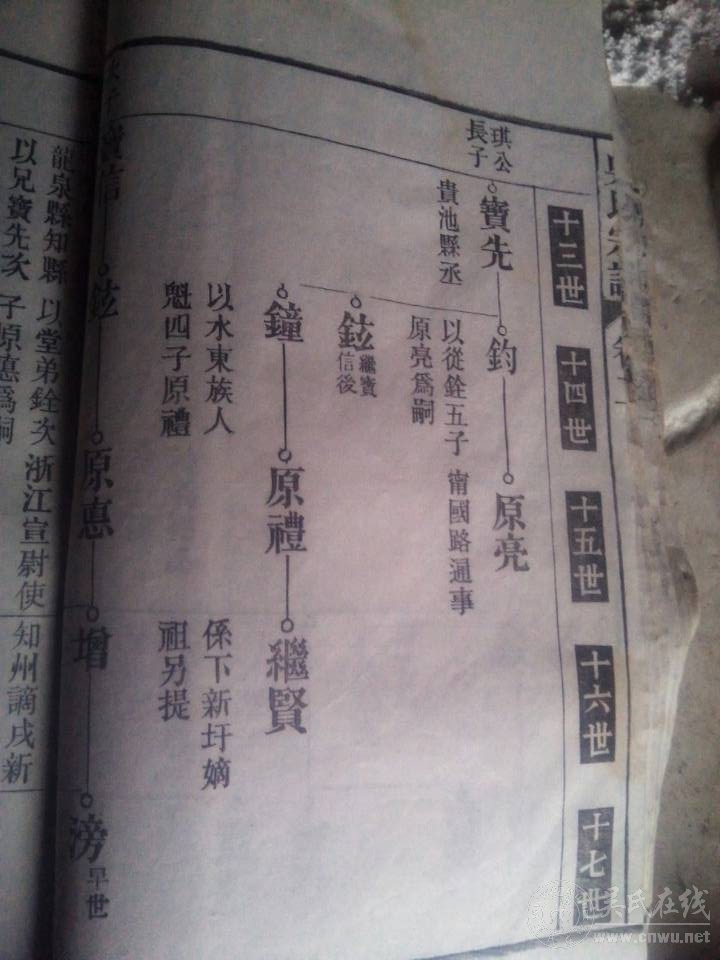 吳氏宗譜
十三世
十四世
十五世
十六世
十七世
琪公
長子
寶先
貴池縣丞
鈞
以從銓五子
原亮爲嗣
原亮
甯國路通事
鉉
繼寶
信後
鐘
以水東族人
魁四子原禮
原禮
繼賢
係下新圩嫡
祖另提
次子
寶信
鉉
原惪
增
滂
早世
龍泉縣知縣
以兄寶先次
以堂弟銓次
子原惪爲嗣
浙江宣尉使
知州謫戌新
吳氏在线
www.cnwu.net